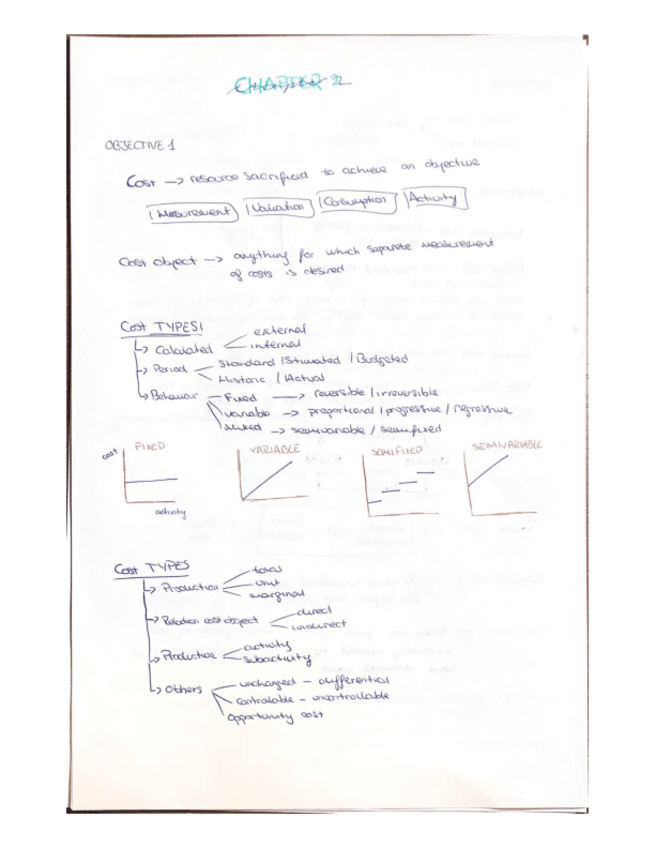 CHAPTER 2
OBJECTIVE 1
Cost → resource sacrificed to achieve an objective
Measurement Valuation Consumption Activity
Cost object → anything for which separate measurement
of costs is desired
Cost TYPES
Calculated external
internal
Period Standard / Stimated / Budgeted
Historic / Actual
Behaviour Fixed → reversible / irreversible
Variable → proportional / progressive / regressive
Mixed → semivariable / semifixed
cost FIXED VARIABLE SEMIFIXED SEMIVARIABLE
activity
Cost TYPES
Production total
unit
marginal
Relation cost object direct
indirect
Productive activity
subactivity
Others uncharged - differential
controllable - uncontrollable
Opportunity cost